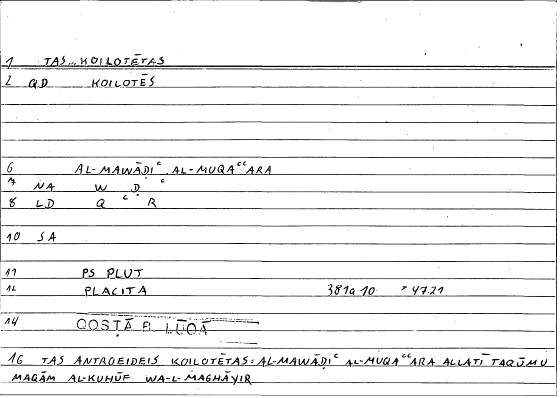 1 TAS... KOILOTĒTAS
2 QD KOILOTĒS
6 AL-MAWĀḌIᶜ AL-MUQAᶜᶜARA
7 NA W Ḍ ᶜ
8 LD Q ᶜ R
10 SA
11 PS PLUT
12 PLACITA 381a 10 * 47.21
14 QOSṬĀ B. LŪQĀ
16 TAS ANTROEIDEIS KOILOTĒTAS = AL-MAWĀḌIᶜ AL-MUQAᶜᶜARA ALLATĪ TAQŪMU
MAQĀM AL-KUHŪF WA-L-MAGHĀYIR